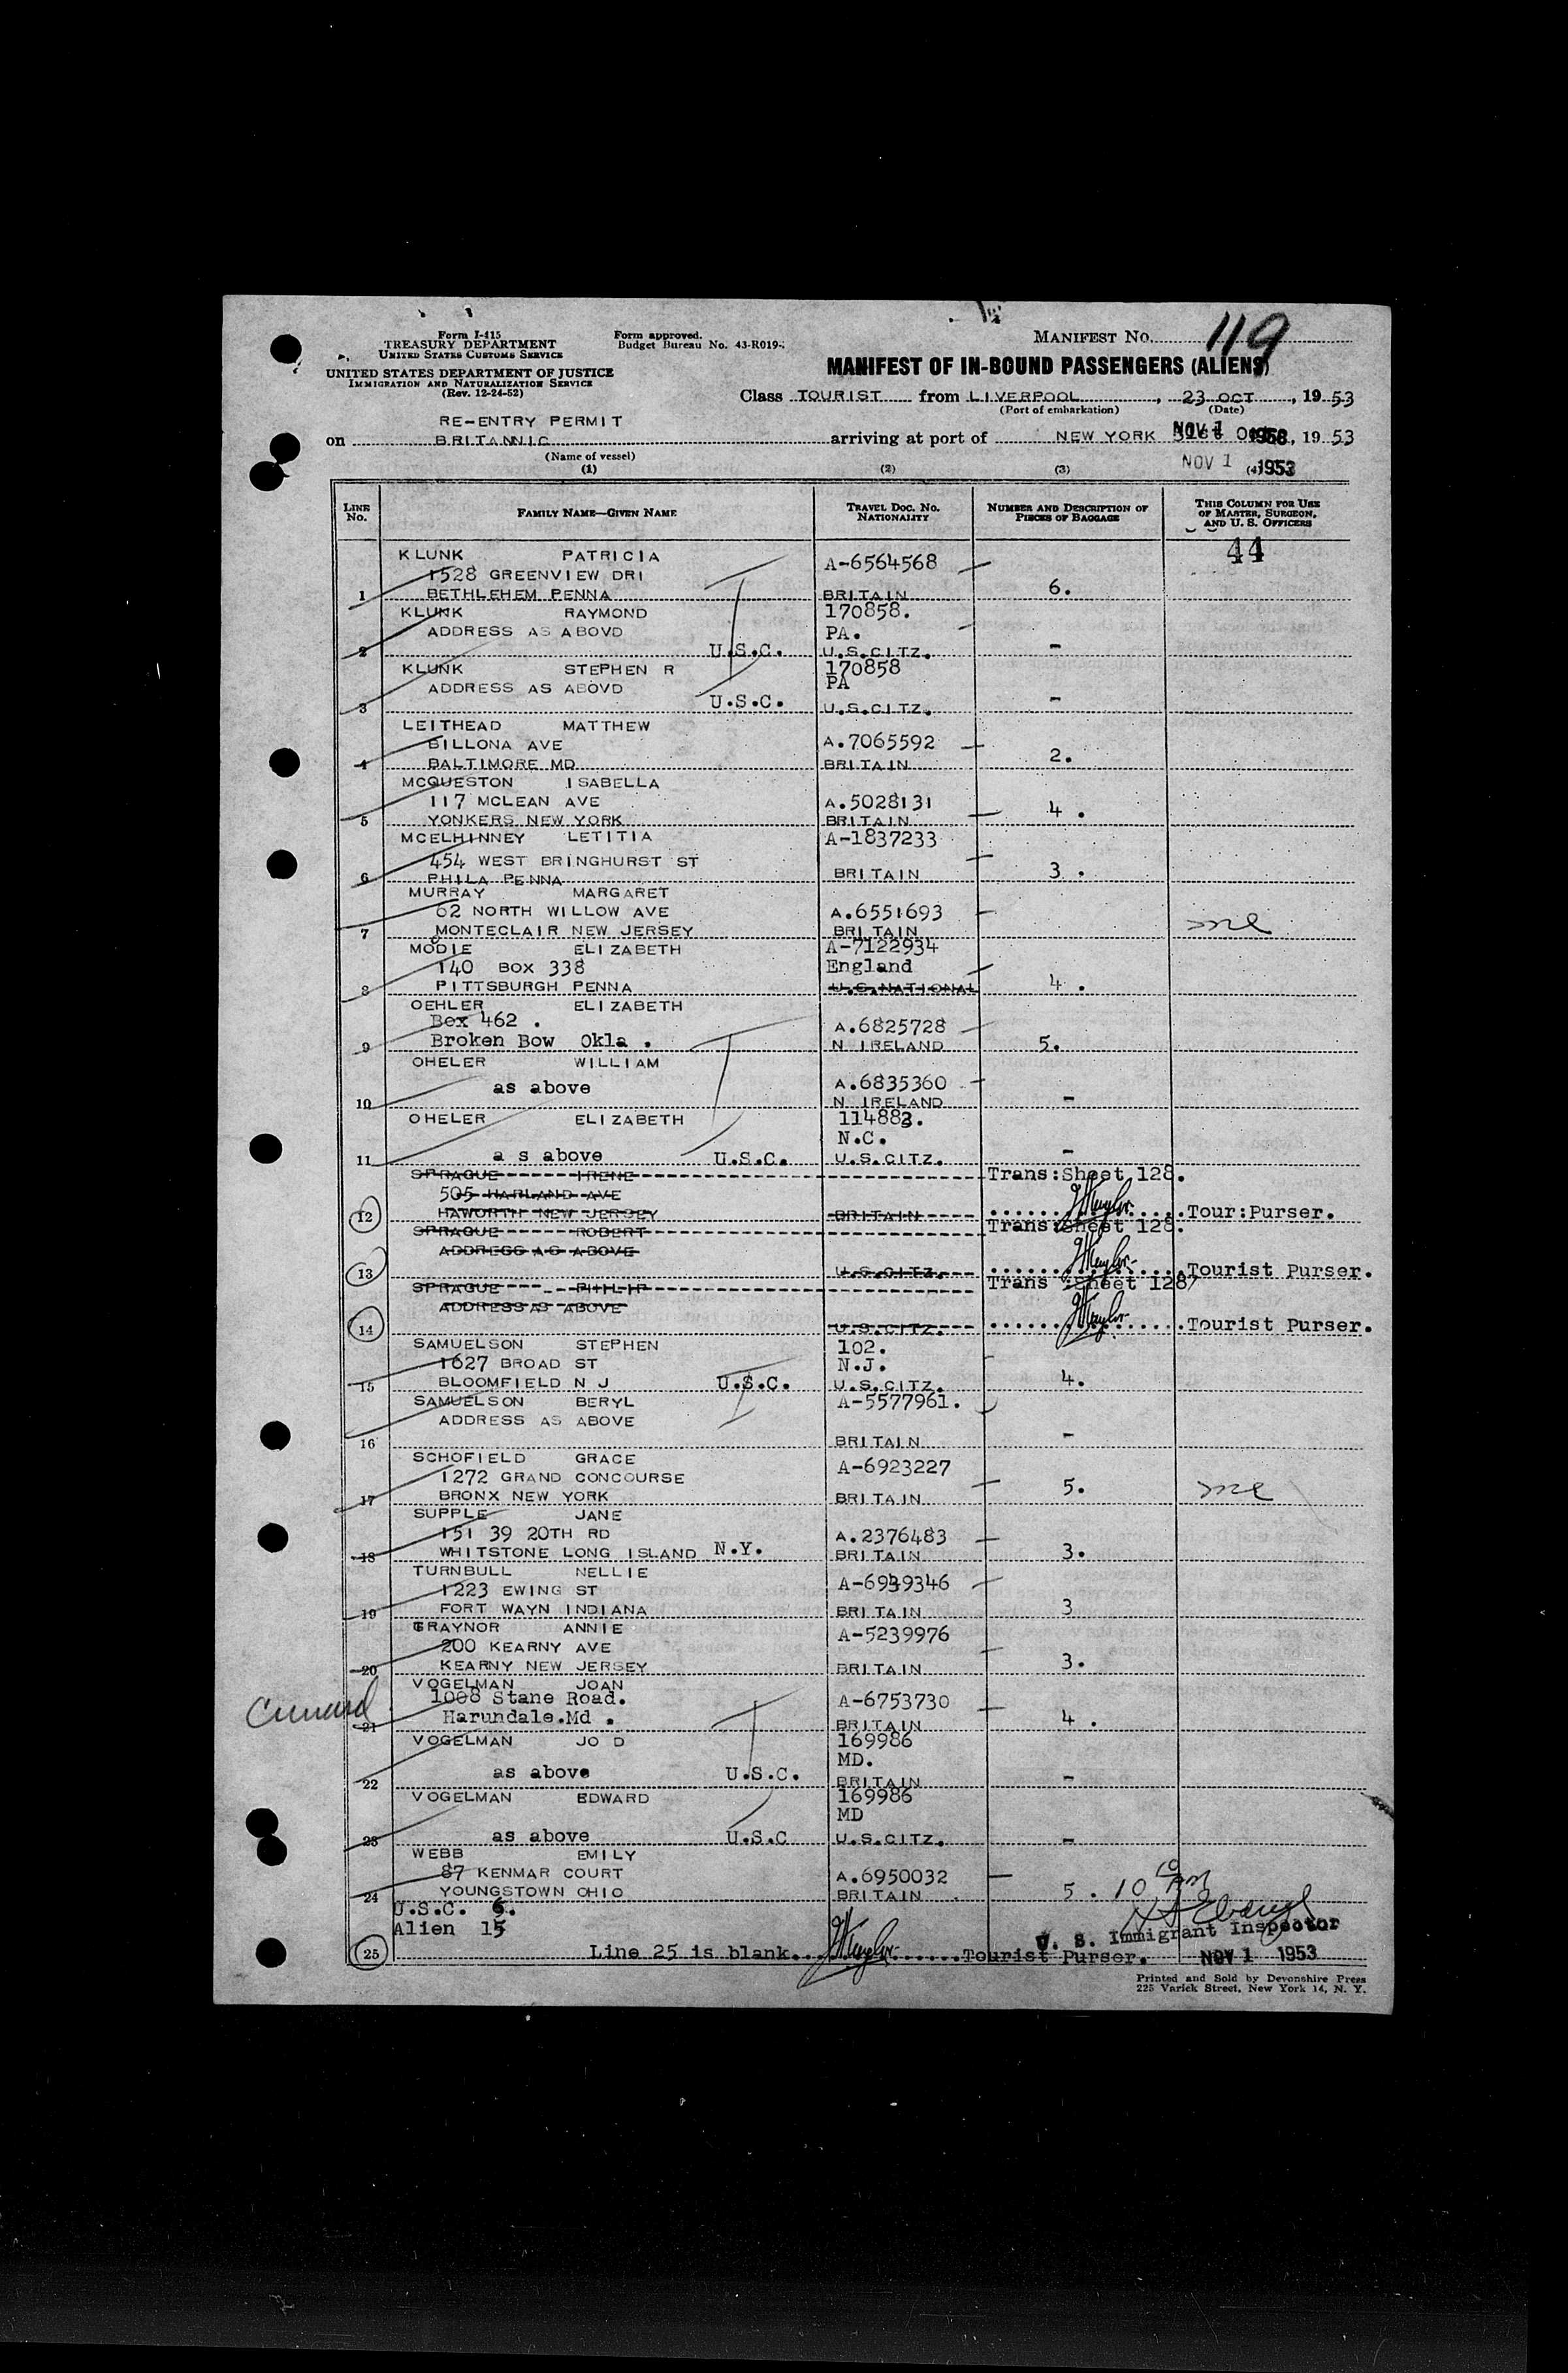 Form I-415
TREASURY DEPARTMENT
UNITED STATES CUSTOMS SERVICE
UNITED STATES DEPARTMENT OF JUSTICE
IMMIGRATION AND NATURALIZATION SERVICE
(Rev. 12-24-52)
Form approved.
Budget Bureau No. 43-R019-
MANIFEST No. 119
MANIFEST OF IN-BOUND PASSENGERS (ALIENS)
Class TOURIST from LIVERPOOL, 23 OCT, 1953
(Port of embarkation) (Date)
RE-ENTRY PERMIT
on BRITANNIC arriving at port of NEW YORK NOV 1, 1953
(Name of vessel)
NOV 1 1953
(1) (2) (3) (4)
LINE No. FAMILY NAME—GIVEN NAME TRAVEL DOC. No. NATIONALITY NUMBER AND DESCRIPTION OF PIECES OF BAGGAGE THIS COLUMN FOR USE OF MASTER, SURGEON, AND U. S. OFFICERS
44
KLUNK PATRICIA A-6564568
1528 GREENVIEW DRI
1 BETHLEHEM PENNA BRITAIN 6.
KLUNK RAYMOND 170858.
ADDRESS AS ABOVD PA.
2 U.S.C. U.S.CITZ. -
KLUNK STEPHEN R 170858
ADDRESS AS ABOVD PA
3 U.S.C. U.S.CITZ. -
LEITHEAD MATTHEW
BILLONA AVE A.7065592
4 BALTIMORE MD BRITAIN 2.
MCQUESTON ISABELLA
117 MCLEAN AVE A.5028131
5 YONKERS NEW YORK BRITAIN 4.
MCELHINNEY LETITIA A-1837233
454 WEST BRINGHURST ST
6 PHILA PENNA BRITAIN 3.
MURRAY MARGARET
62 NORTH WILLOW AVE A.6551693
7 MONTECLAIR NEW JERSEY BRITAIN
MODIE ELIZABETH A-7122934
140 BOX 338 England
8 PITTSBURGH PENNA U.S.NATIONAL 4.
OEHLER ELIZABETH
Box 462 . A.6825728
9 Broken Bow Okla . N IRELAND 5.
OHELER WILLIAM
as above A.6835360
10 N IRELAND -
OHELER ELIZABETH 114883.
N.C.
11 a s above U.S.C. U.S.CITZ. -
SPRAGUE IRENE Trans:Sheet 128.
505 HARLAND AVE
12 HAWORTH NEW JERSEY BRITAIN Tour:Purser.
SPRAGUE ROBERT Trans:Sheet 128.
ADDRESS AS ABOVE
13 U.S.CITZ. Tourist Purser.
SPRAGUE PHILIP Trans :Sheet 128
ADDRESS AS ABOVE
14 U.S.CITZ. Tourist Purser.
SAMUELSON STEPHEN 102.
1627 BROAD ST N.J.
15 BLOOMFIELD N J U.S.C. U.S.CITZ. 4.
SAMUELSON BERYL A-5577961.
ADDRESS AS ABOVE
16 BRITAIN -
SCHOFIELD GRACE A-6923227
1272 GRAND CONCOURSE
17 BRONX NEW YORK BRITAIN 5.
SUPPLE JANE
151 39 20TH RD A.2376483
18 WHITSTONE LONG ISLAND N.Y. BRITAIN 3.
TURNBULL NELLIE
1223 EWING ST
19 FORT WAYN INDIANA BRITAIN 3
ANNIE A-5239976
200 KEARNY AVE
20 KEARNY NEW JERSEY BRITAIN 3.
VOGELMAN JOAN
1008 Stane Road. A-6753730
21 Harundale.Md . BRITAIN 4 .
VOGELMAN JO D 169986
MD.
22 as above U.S.C. BRITAIN -
VOGELMAN EDWARD 169986
MD
23 as above U.S.C U.S.CITZ. -
WEBB EMILY
87 KENMAR COURT A.6950032
24 YOUNGSTOWN OHIO BRITAIN 5 .
U.S.C. 6.
Alien 15
U. S. Immigrant Inspector
25 Line 25 is blank. Tourist Purser. NOV 1 1953
Printed and Sold by Devonshire Press
225 Varick Street, New York 14, N. Y.